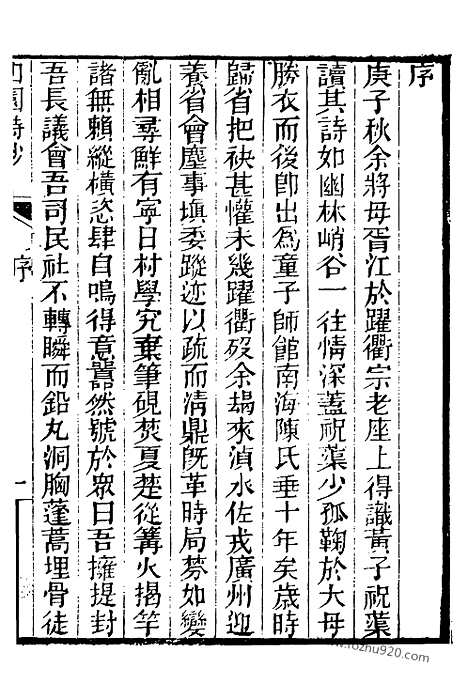 序
庚子秋余將母胥江於躍衢宗老座上得識黃子祝蕖
讀其詩如幽林峭谷一往情深蓋祝蕖少孤鞠於大母
勝衣而後卽出為童子師館南海陳氏垂十年矣歲時
歸省把袂甚懽未幾躍衢歿余朅來湞水佐戎廣州迎
養省會塵事塡委蹤迹以疏而清鼎旣革時局棼如變
亂相尋鮮有寧日村學究棄筆硯焚夏楚從篝火揭竿
諸無賴縱橫恣肆自鳴得意囂然號於眾曰吾擁提封
吾長議會吾司民社不轉瞬而鉛丸洞胸蓬蒿埋骨徒
園詩鈔
序
一
www.fozhu920.com